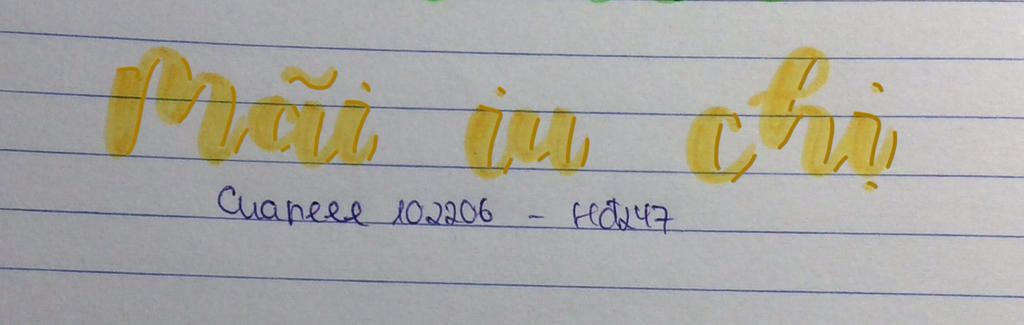 Mãi iu chị
Cuaneee 102206 - Hđ247